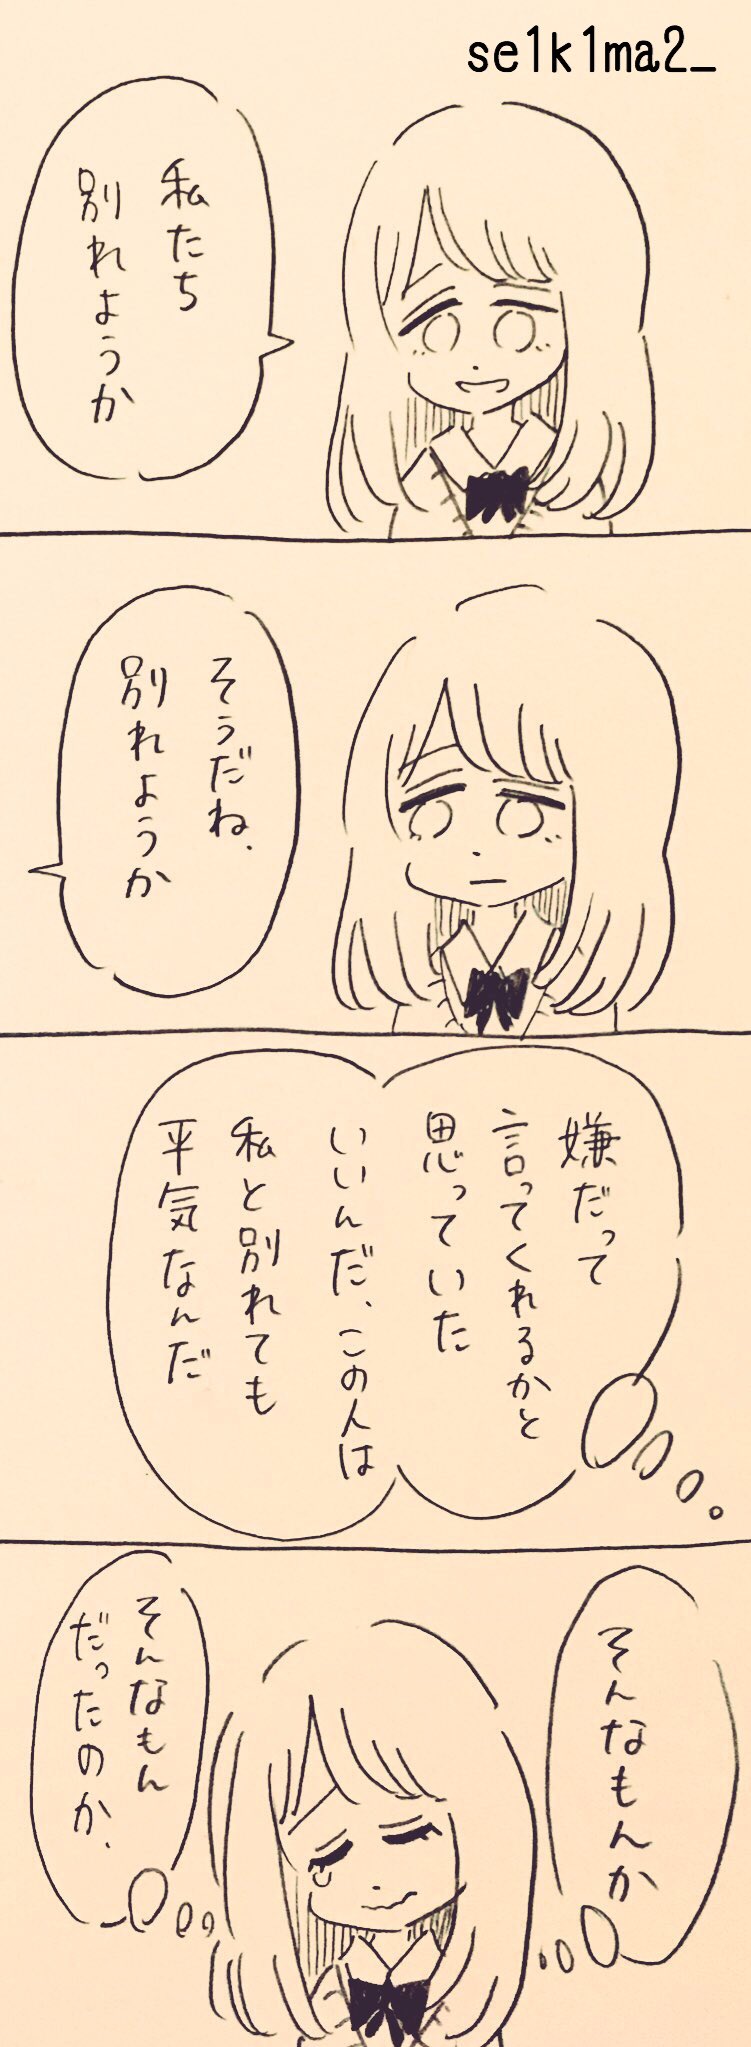 se1k1ma2_
私たち
別れようか
そうだね、
別れようか
嫌だって
言ってくれるかと
思っていた
いいんだ、この人は
私と別れても
平気なんだ
そんなもんか
そんなもん
だったのか、